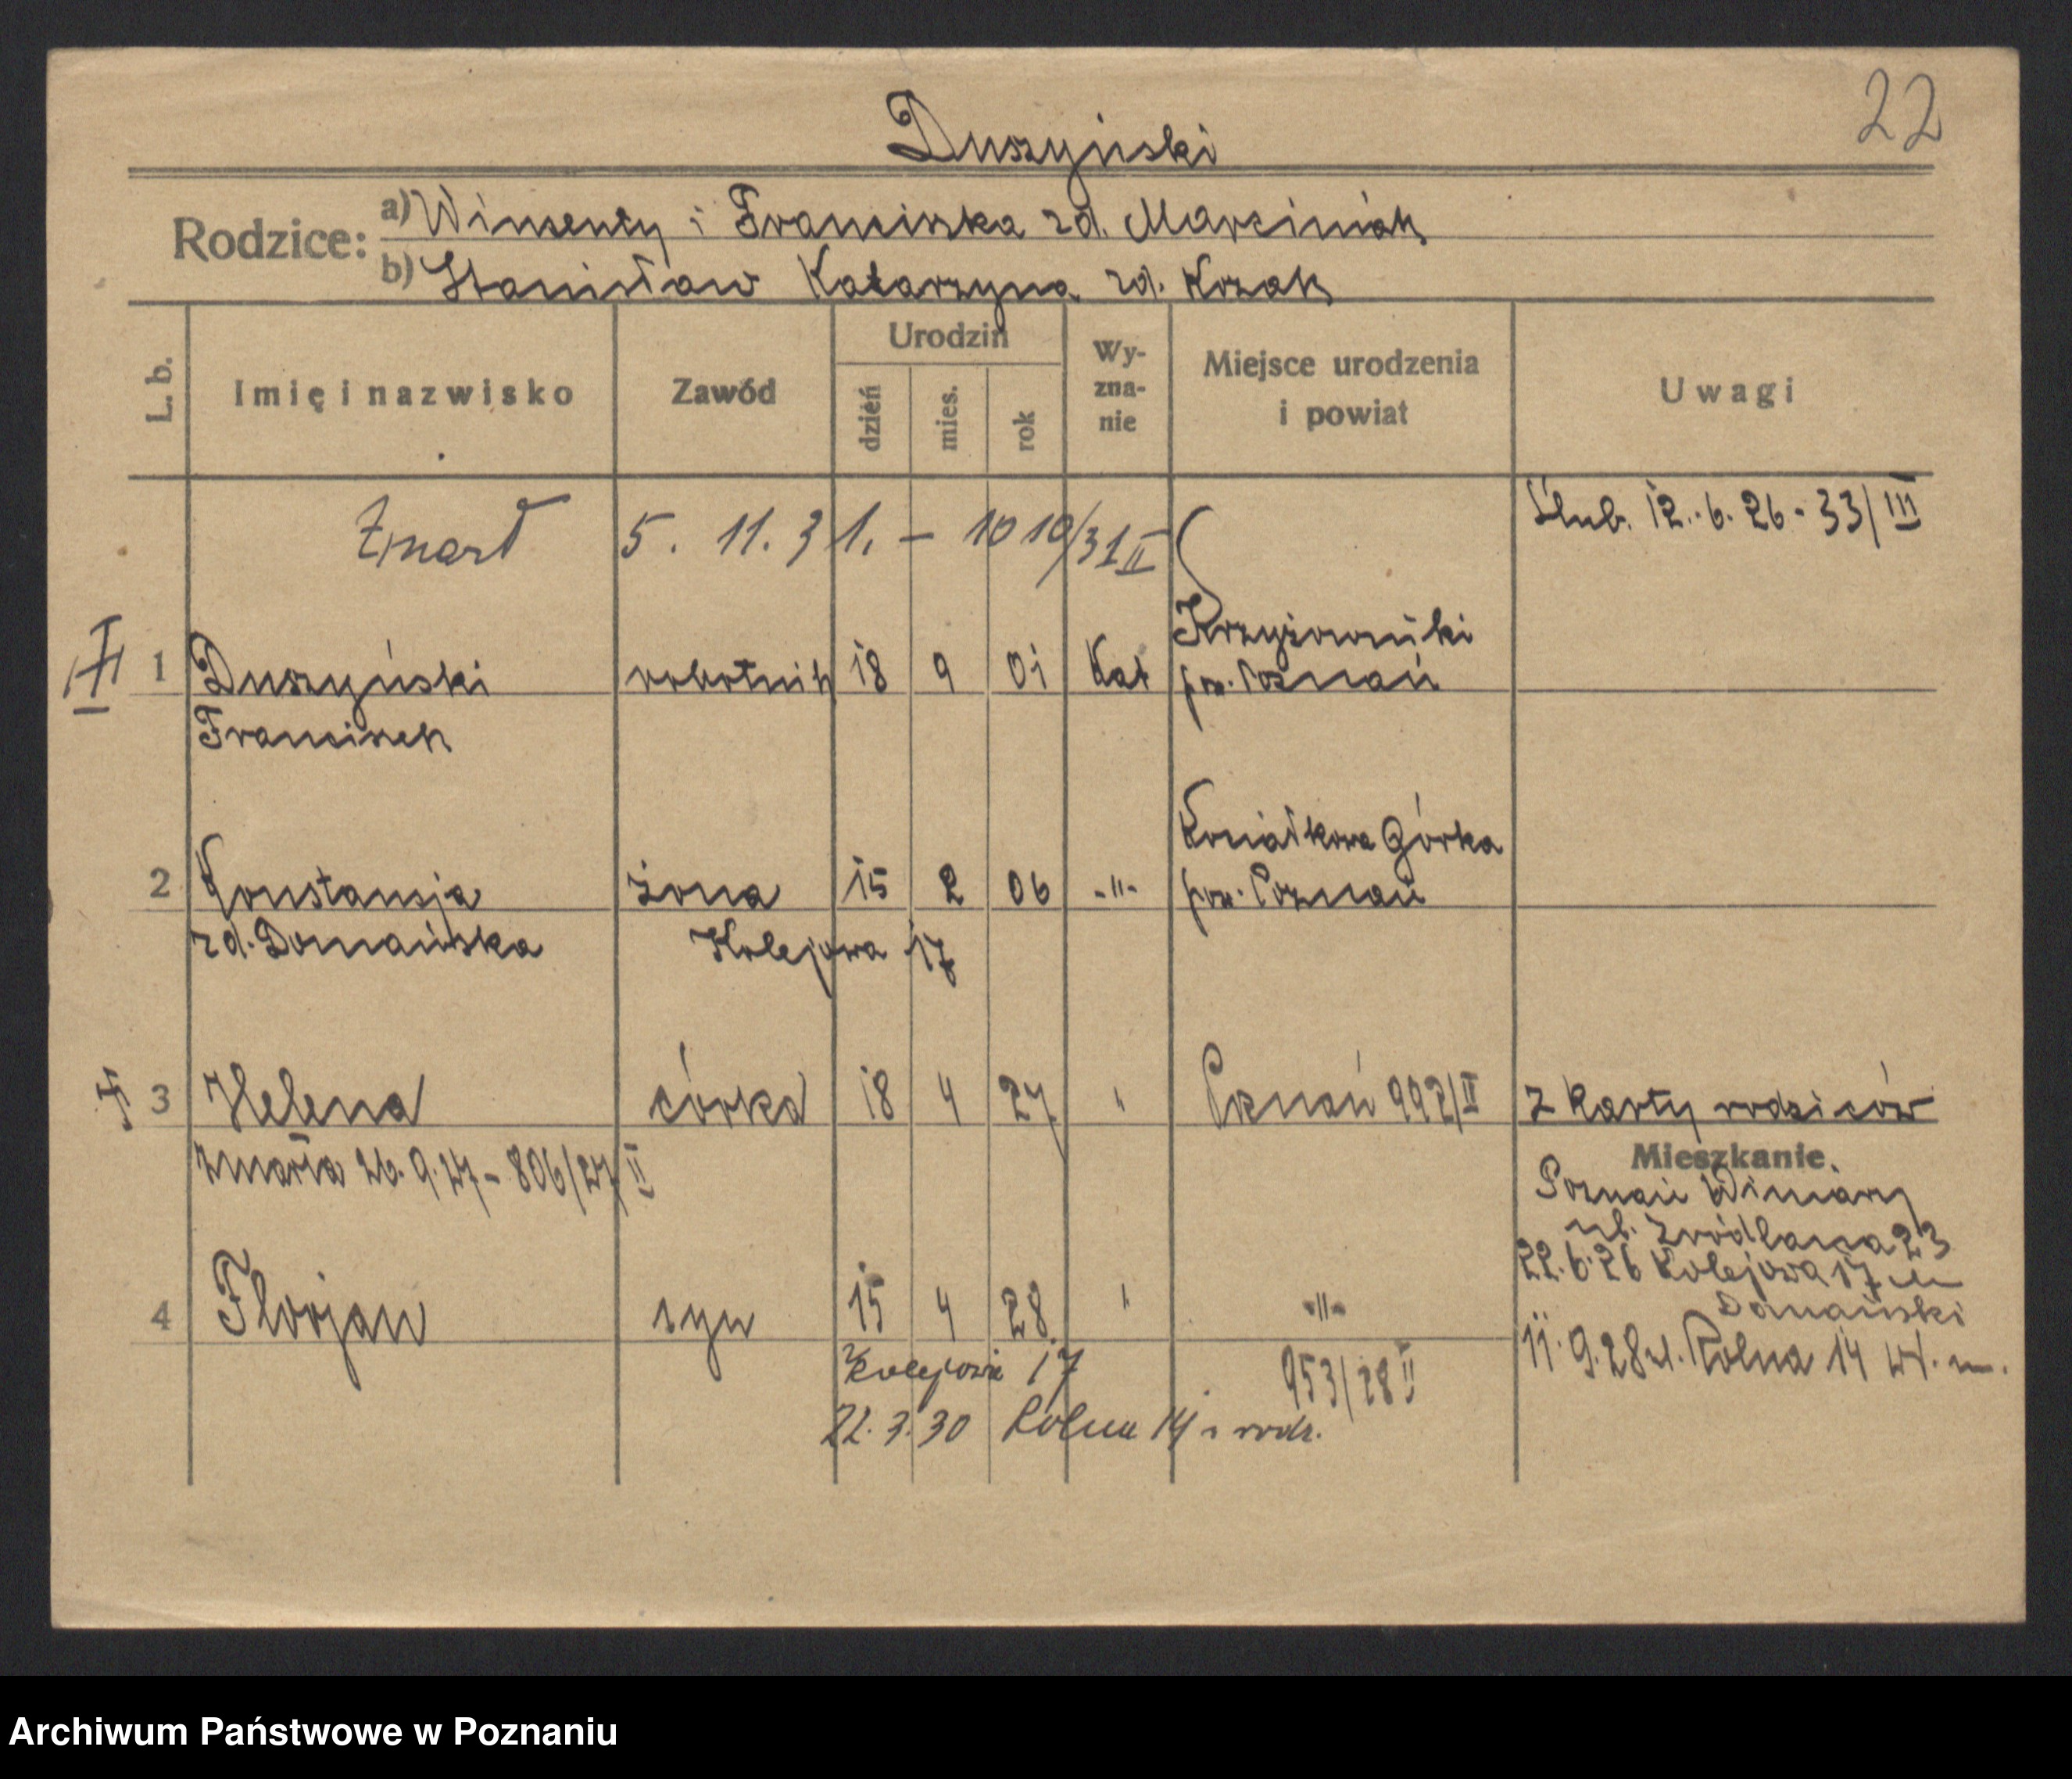 22
Duszyński
Rodzice:
a) Wincenty i Franciszka zd. Marciniak
b) Stanisław Katarzyna zd. Kozak
L. b.
Imię i nazwisko
Zawód
Urodzin
dzień
mies.
rok
Wy-
zna-
nie
Miejsce urodzenia
i powiat
Uwagi
Zmarł 5. 11. 31. - 1010/31 II
Ślub. 12.. 6. 26 - 33/III
1 Duszyński robotnik 18 9 01 Kat Krzyżowniki
pow. Poznań
Franciszek
2 Konstancja żona 15 2 06 -"- Górka
pow. Poznań
zd. Domańska Kolejowa 17
3 Helena córka 18 4 27 " Poznań 992/II z karty rodziców
zmarła 26. 9. 27 - 806/27 II
Mieszkanie
Poznań Winiary
ul. Źródlana 23
22. 6. 26 Kolejowa 17 u
Domański
11. 9. 28 ul. Rolna 14 wł. m.
4 Florjan syn 15 4 28 " -"-
Kolejowa 17 953/28 II
22. 3. 30 Rolna 14 rodz.
Archiwum Państwowe w Poznaniu